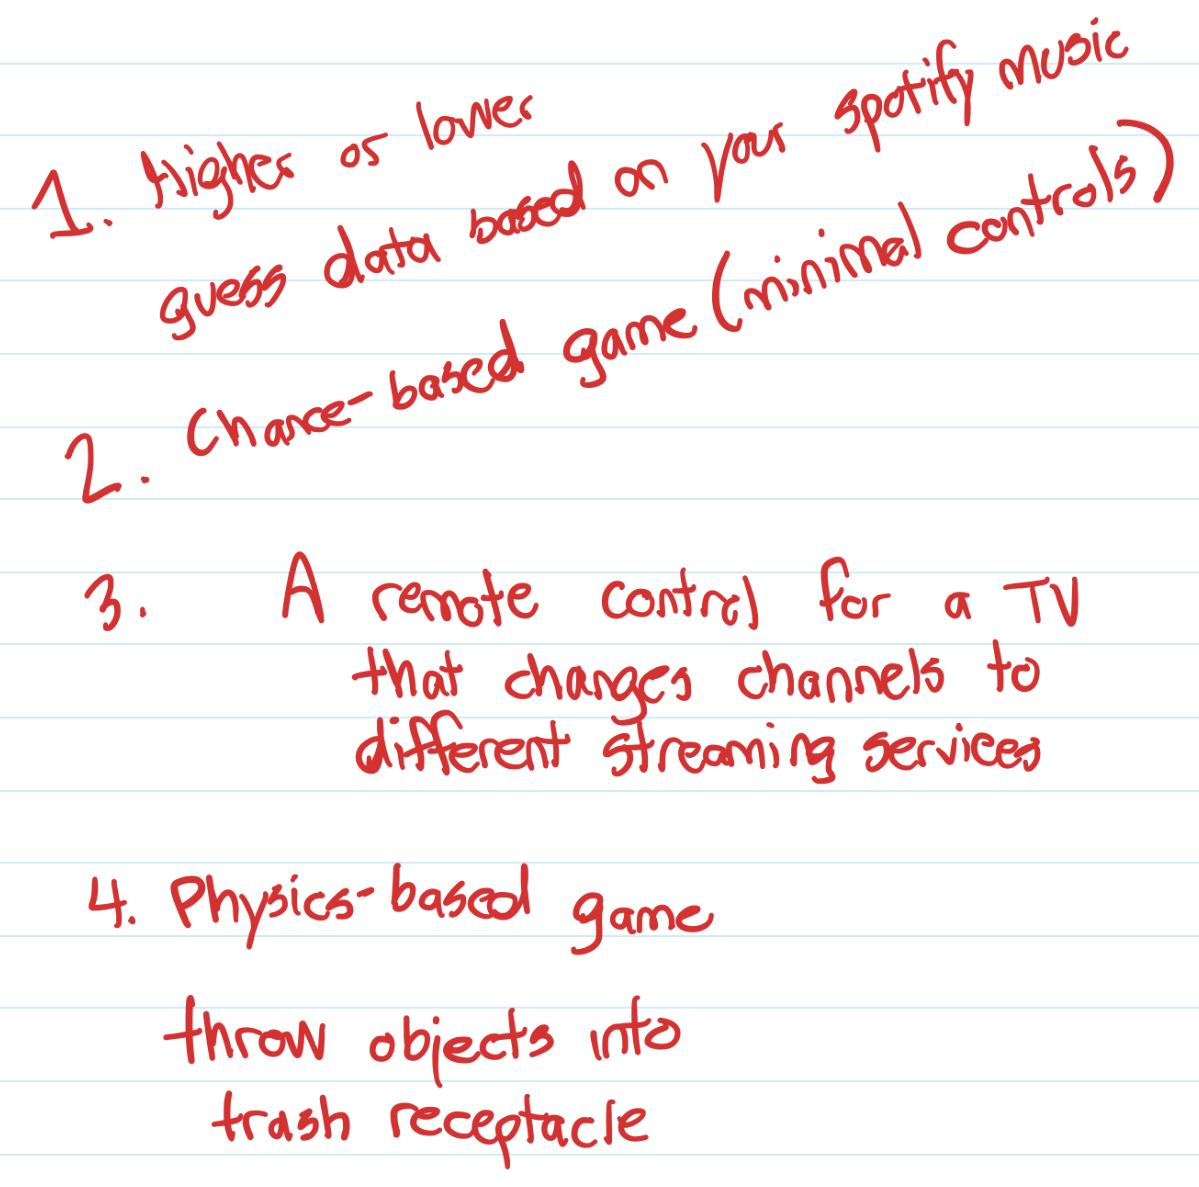 1. Higher or lower
guess data based on your spotify music
2. Chance-based game (minimal controls)
3. A remote control for a TV
that changes channels to
different streaming services
4. Physics-based game
throw objects into
trash receptacle